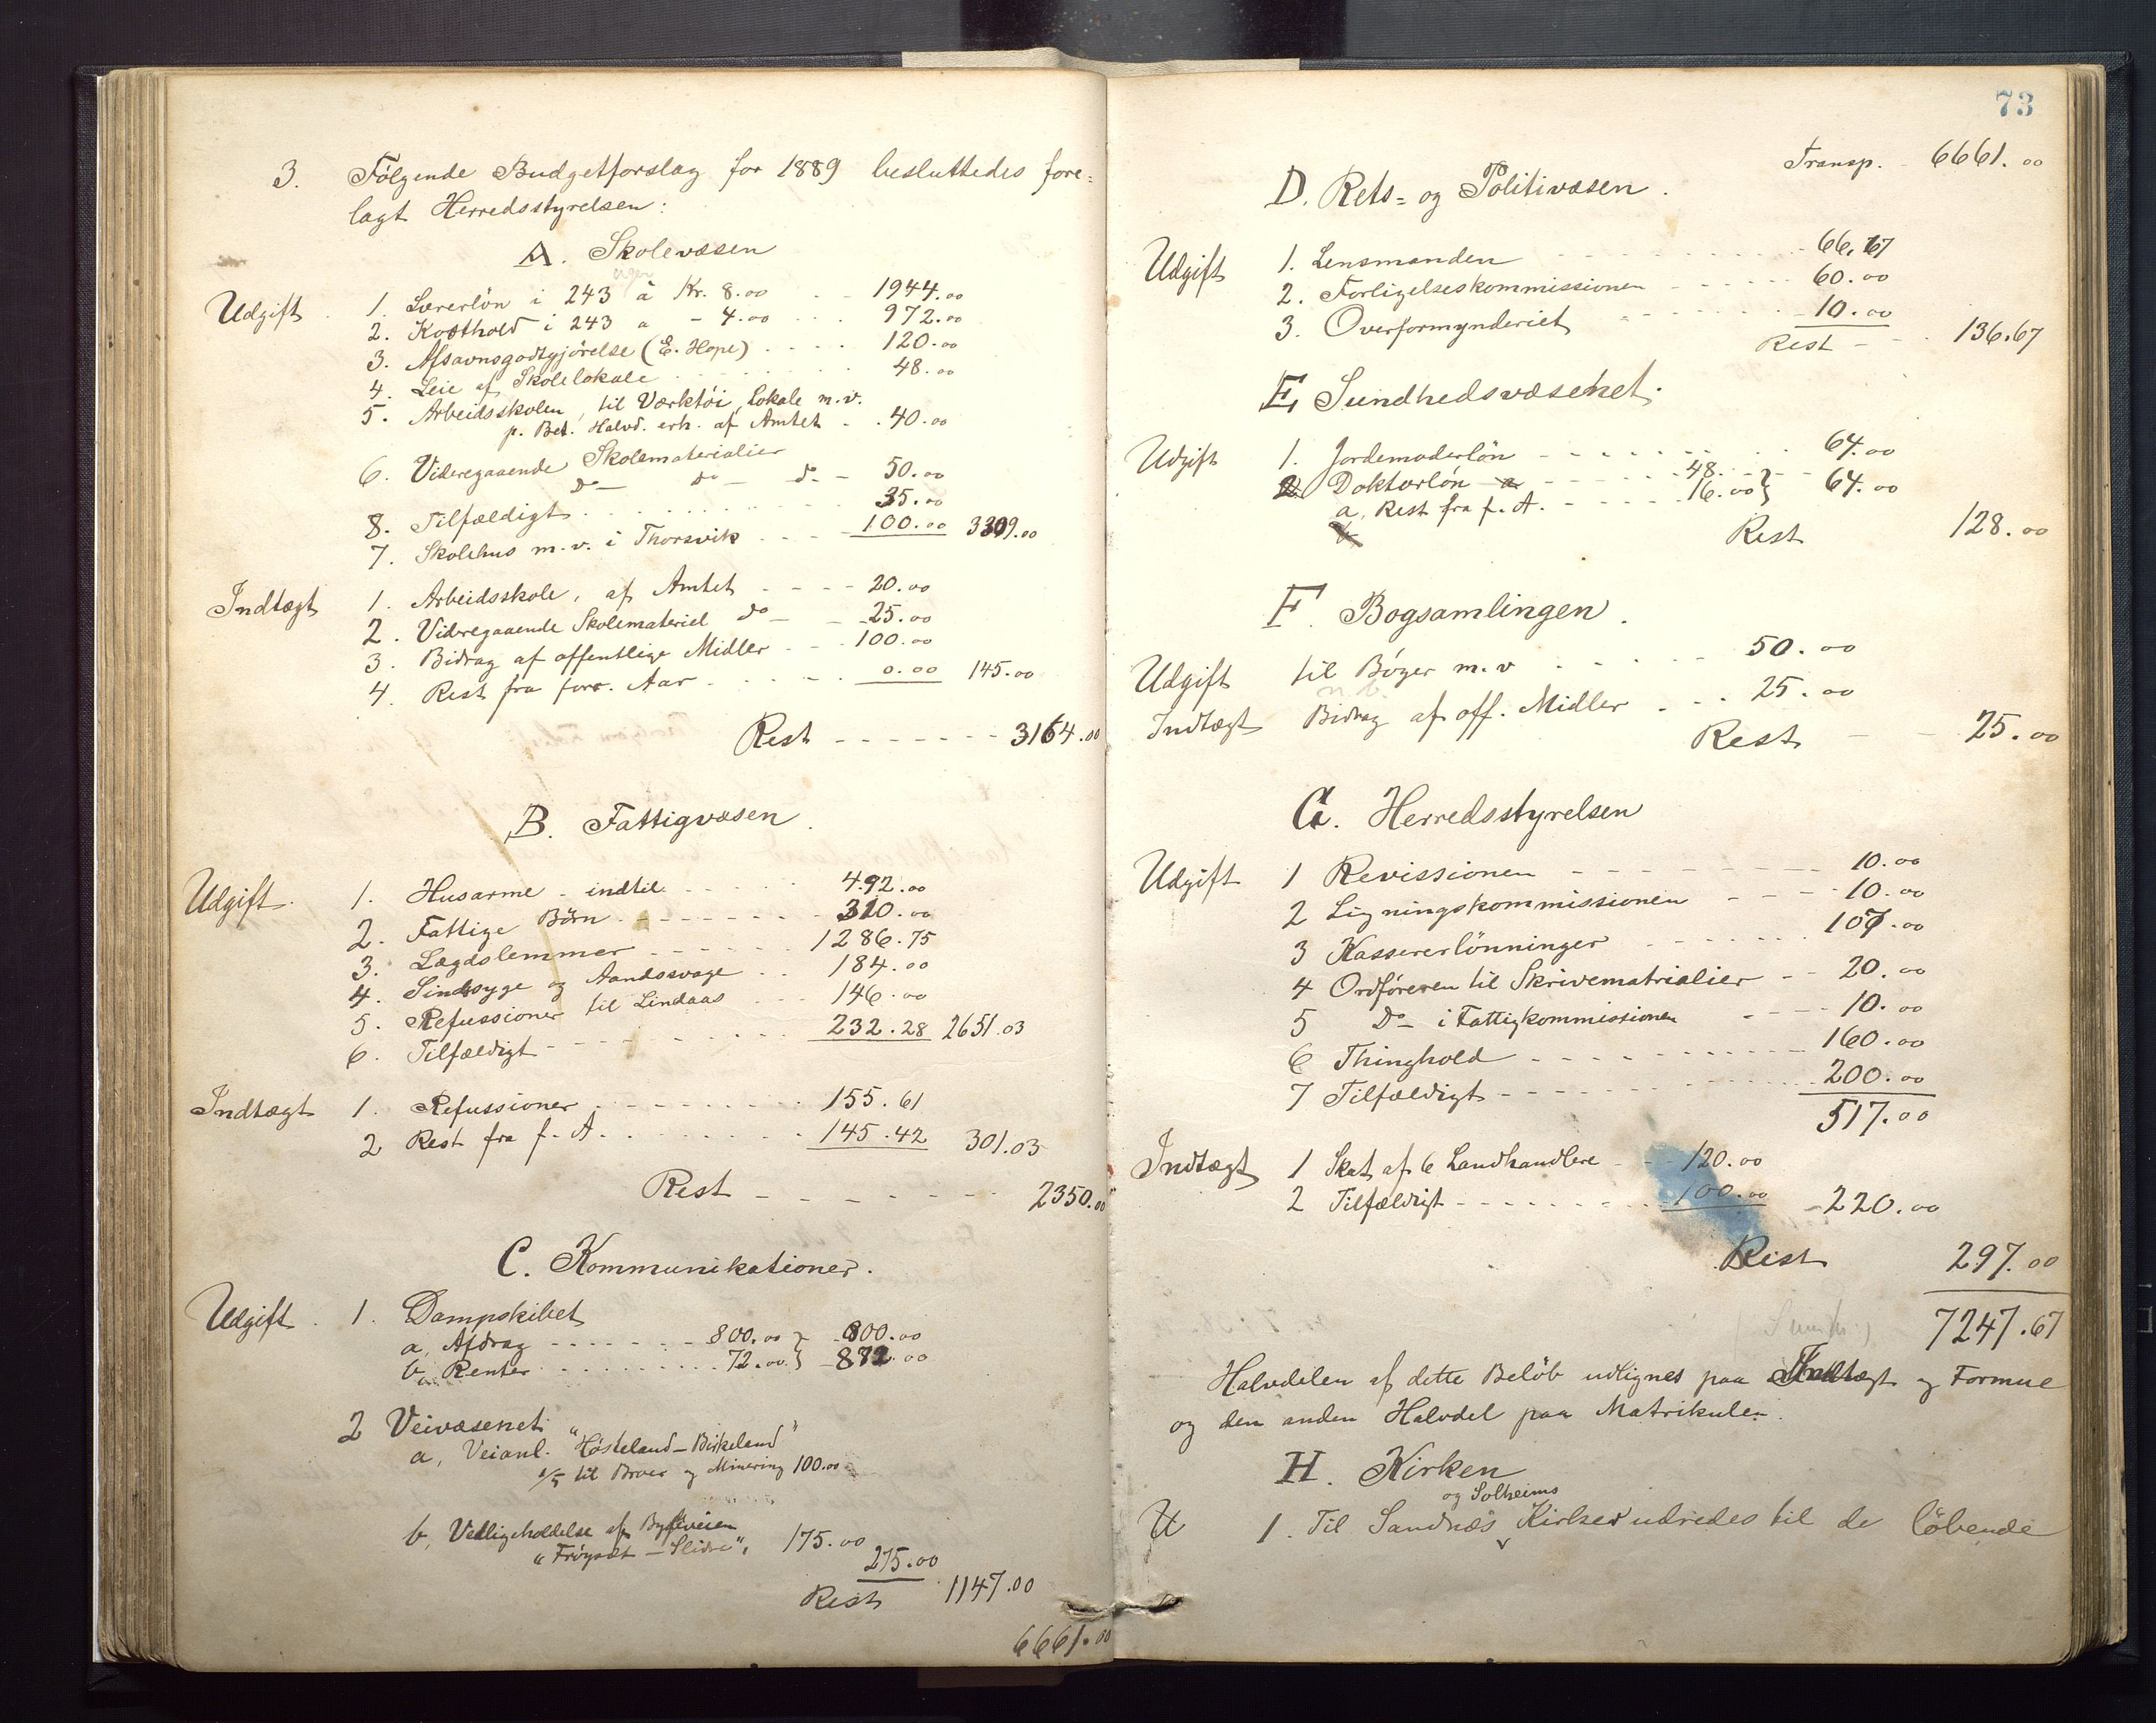 3. Følgende Budgetforslag for 1889 besluttedes fore=
lagt Herredsstyrelsen:
A. Skolevæsen
uger
Udgift 1. Lærerlön i 243 à Kr. 8.00 1944.00
2. Kosthold i 243 a - 4.00 972.00
3. Afsavnsgodtgjörelse (E. Hope) 120.00
4. Leie af Skolelokale 48.00
5. Arbeidsskolen, til Værktöi, Lokale m.v.
p. Bet. Halvd. erh. af Amtet 40.00
6. Videregaaende Skolematerialier
do do do 50.00
8. Tilfældigt 35.00
7. Skolehus m.v. i Thorsvik 100.00 3309.00
Indtægt 1. Arbeidsskole, af Amtet 20.00
2. Videregaaende Skolemateriel do 25.00
3. Bidrag af offentlige Midler 100.00
4. Rest fra forr. Aar 0.00 145.00
Rest 3164.00
B. Fattigvæsen.
Udgift. 1. Husarme - indtil 492.00
2. Fattige Börn 310.00
3. Lægdslemmer 1286.75
4. Sindssyge og Aandssvage 184.00
5. Refussioner til Lindaas 146.00
6. Tilfældigt 232.28 2651.03
Indtægt 1. Refussioner 155.61
2 Rest fra f. A. 145.42 301.03
Rest 2350.00
C. Kommunikationer.
Udgift. 1. Dampskibet
a, Afdrag 800.00 } 800.00
b, Renter 72.00 } 872.00
2 Veivæsenet
a, Veianl. "Hösteland - Birkeland"
1/5 til Broer og Minering 100.00
b, Vedligeholdelse af Bygdveien
"Fröyset - Slidre", 175.00
275.00
Rest 1147.00
6661.00
73
Transp. 6661.00
D. Rets= og Politivæsen.
Udgift 1. Lensmanden 66.67
2. Forligelseskommissionen 60.00
3. Overformynderiet 10.00
Rest 136.67
E Sundhedsvæsenet.
Udgift 1. Jordemoderlön 64.00
2 Doktorlön 48. }
a, Rest fra f. A. 16.00 } 64.00
b
Rest 128.00
F. Bogsamlingen.
Udgift til Böger m.v 50.00
Indtægt Bidrag af off. Midler 25.00
Rest 25.00
G. Herredsstyrelsen
Udgift 1 Revissionen 10.00
2 Ligningskommissionen 10.00
3 Kassererlönninger 107.00
4 Ordføreren til Skrivematrialier 20.00
5 Do i Fattigkommissionen 10.00
6 Thinghold 160.00
7 Tilfældigt 200.00
517.00
Indtægt 1 Skat af 6 Landhandlere 120.00
2 Tilfældigt 100.00 220.00
Rest 297.00
7247.67
Halvdelen af dette Belöb udlignes paa Indtægt og Formue
og den anden Halvdel paa Matrikulen.
H. Kirken
og Solheims
U 1. Til Sandnæs Kirker udredes til de löbende